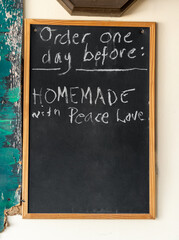 Order one
day before:
HOMEMADE
with Peace Love.